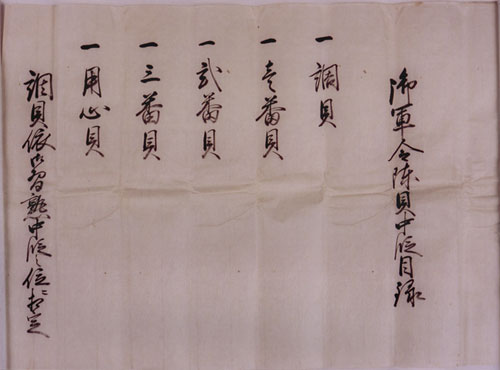 御軍令陣貝中段目録
一 調貝
一 壱番貝
一 弐番貝
一 三番貝
一 用心貝
調貝依御習熟中段之位ニ相定